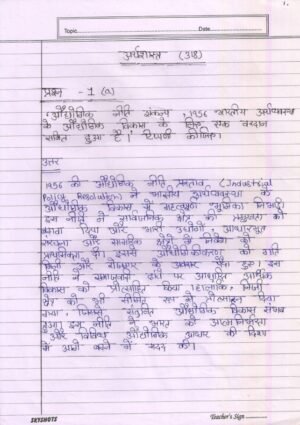 1.
Topic
Date
अर्थशास्त्र (318)
प्रश्न - 1 (a)
"औद्योगिक नीति संकल्प, 1956 भारतीय अर्थव्यवस्था
के औद्योगिक विकास के लिए एक वरदान
साबित हुआ है।" टिप्पणी कीजिए।
उत्तर
1956 की औद्योगिक नीति प्रस्ताव (Industrial
Policy Resolution) ने भारतीय अर्थव्यवस्था के
औद्योगिक विकास में महत्वपूर्ण भूमिका निभाई।
इस नीति ने सार्वजनिक क्षेत्र की प्रमुखता को
बढ़ावा दिया और भारी उद्योगों आधारभूत
संरचना और सामरिक क्षेत्रों में निवेश को
प्राथमिकता दी। इससे औद्योगिकीकरण को गति
मिली और रोजगार के अवसर पैदा हुए। इस
नीति ने समाजवादी ढांचे पर आधारित आर्थिक
विकास को प्रोत्साहित किया। हालांकि, निजी
क्षेत्र को भी सीमित रूप से प्रोत्साहन दिया
गया, जिससे संतुलित औद्योगिक विकास संभव
हुआ। इस नीति ने भारत को आत्मनिर्भरता
और विविध औद्योगिक आधार की दिशा
में आगे बढ़ने में मदद की।
SKYSHOTS
Teacher's Sign